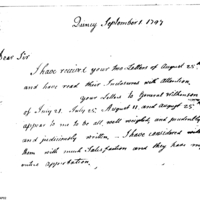 Quincy September 1 1797
Dear Sir
I have received your two Letters of August 25th
and have read their Inclosures with attention.
your Letters to General Wilkinson
of July 21. July 25. August 11. and August 25th
appear to me to be all well weighed, and prudently
and judiciously written. I have considered
them with much Satisfaction and they have my
entire approbation.